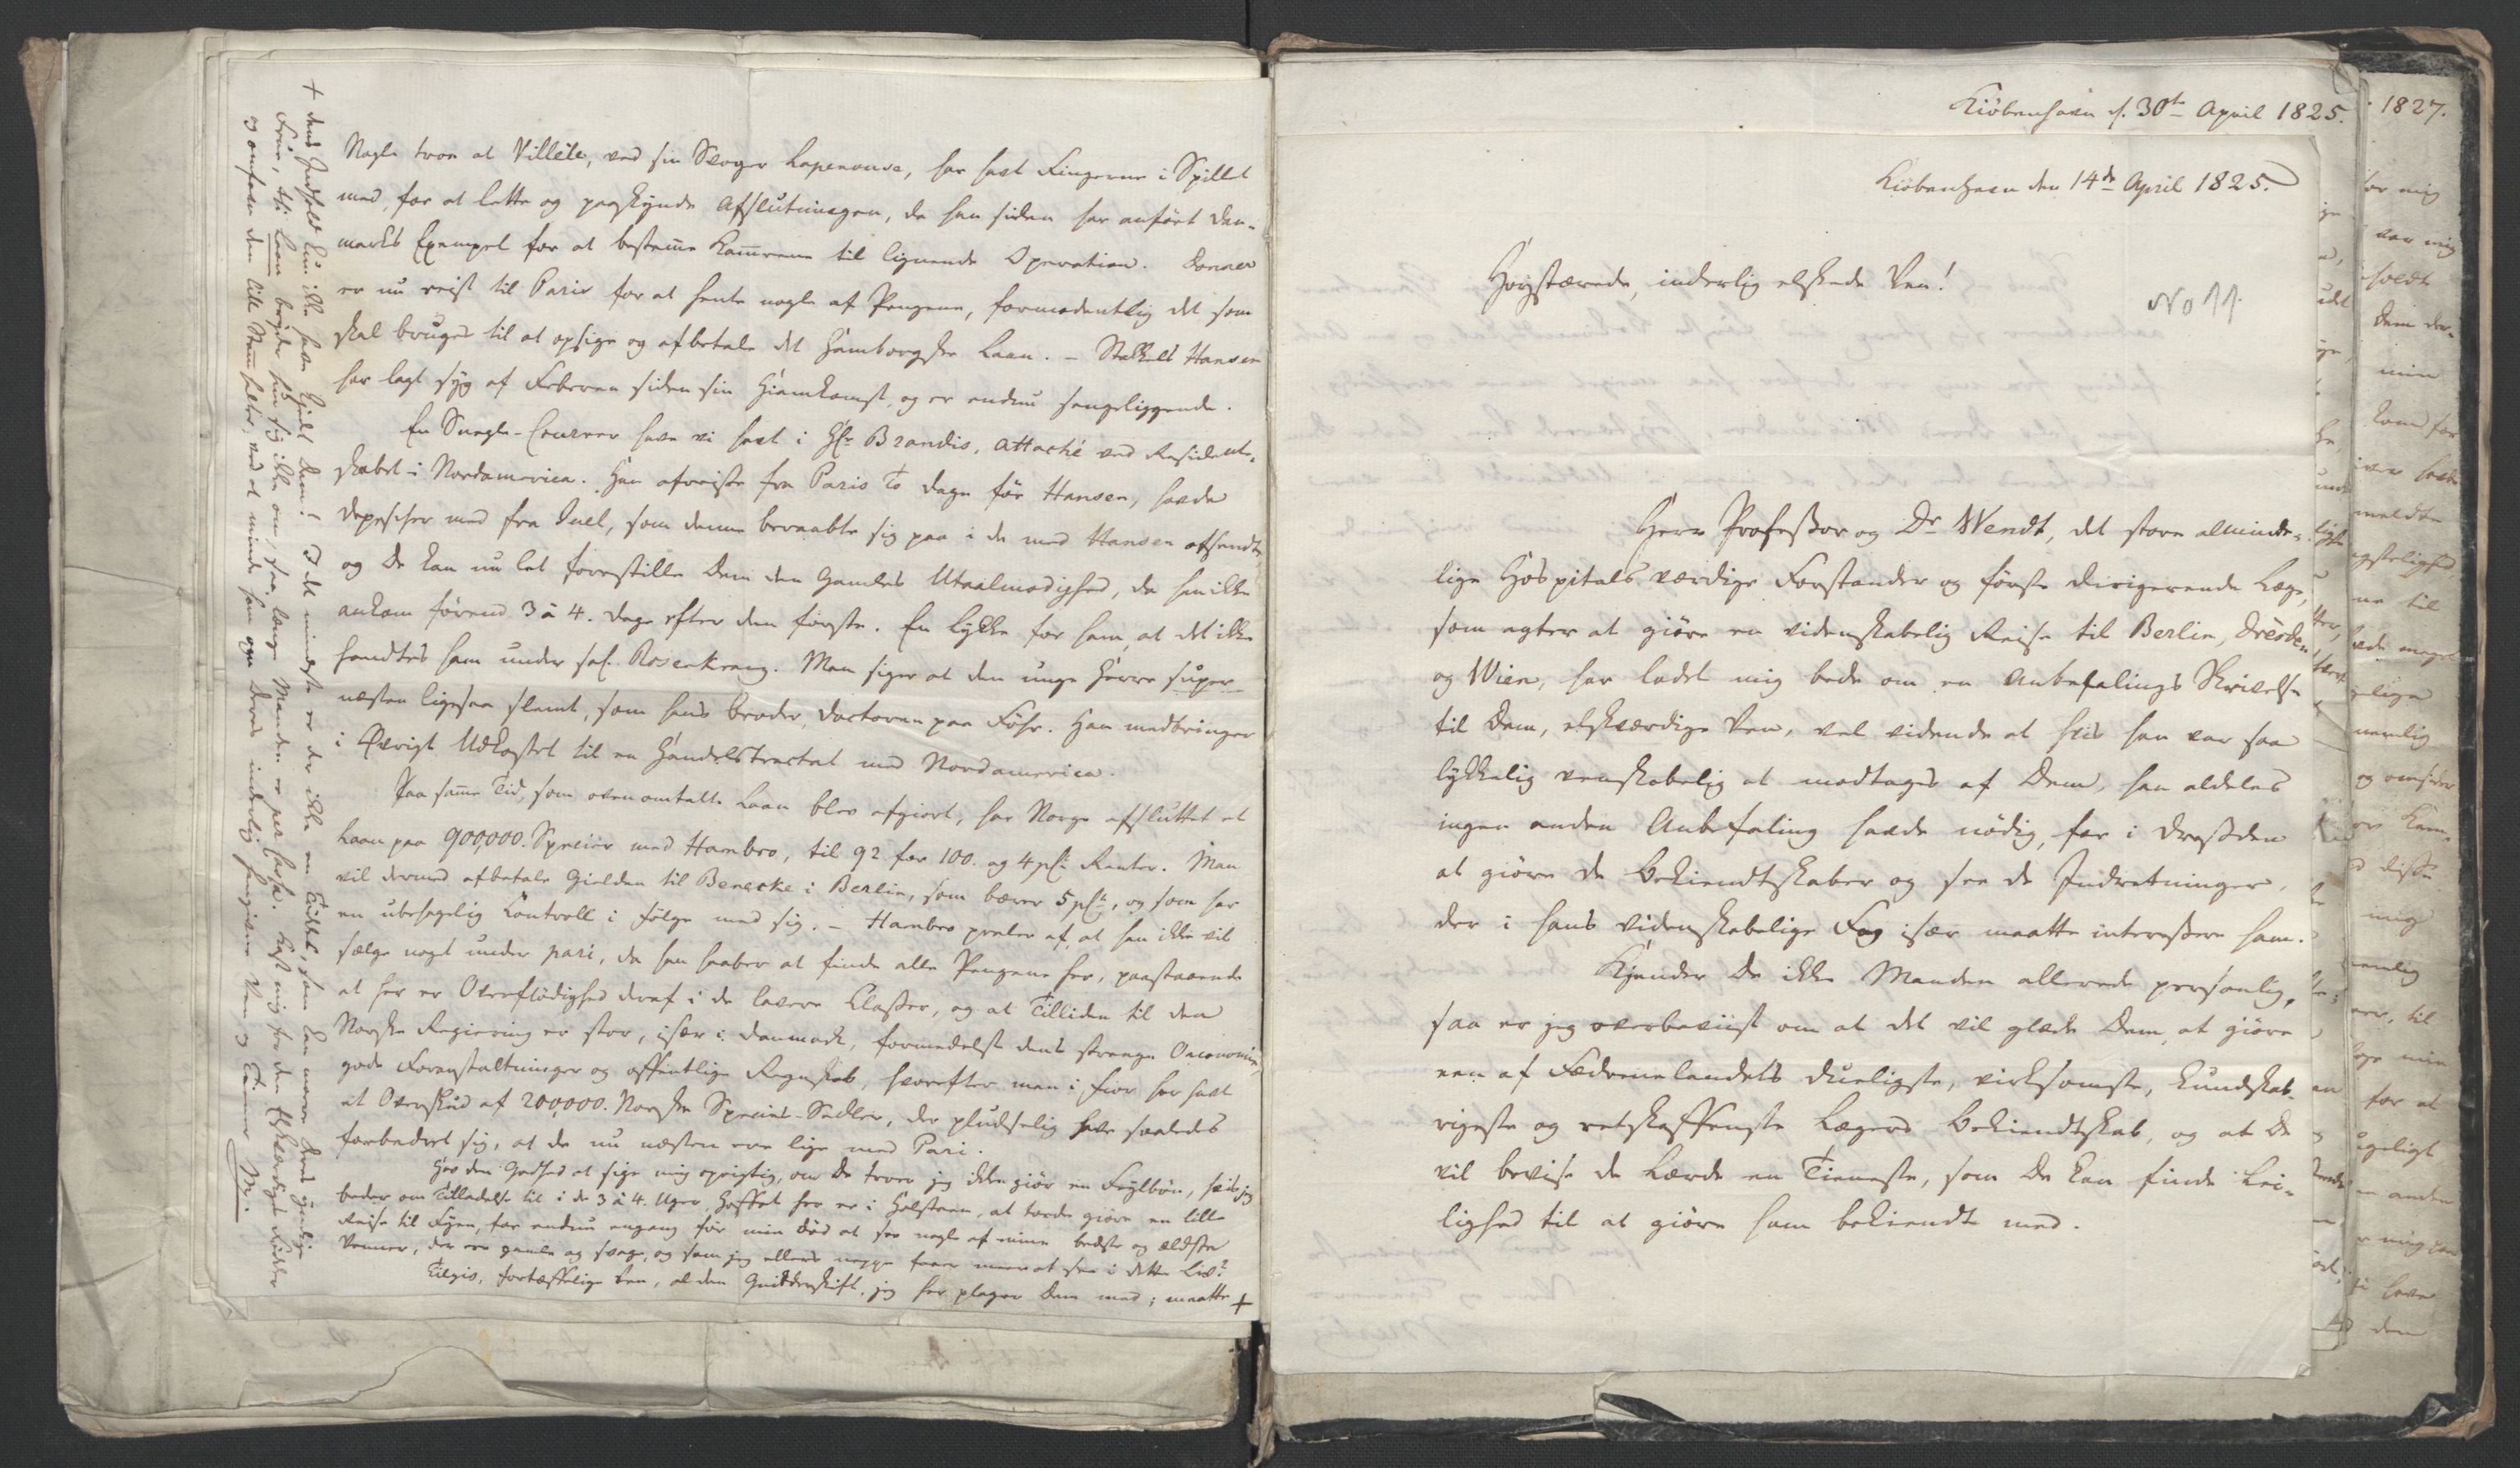 Nogle troe at Villèle, ved sin Svoger Lapenouse, har havt Fingerne i Spillet
med, for at lette og paaskynde Afslutningen, da han siden har anført Dan-
marks Exempel for at bestem̄e Kam̄rene til lignende Operation. Donner
er nu reist til Paris for at hente nogle af Pengene, formodentlig det som
skal bruges til at opsige og afbetale det Hamborgske Laan. – Stakkels Hansen
har lagt syg af Feberen siden sin Hiemkomst, og er endnu sengeliggende.
En Snegle-Coureer have vi havt i Hr. Brandis, attaché ved Resident-
skabet i Nordamerica. Han afreiste fra Paris to Dage før Hansen, havde
Depescher med fra Juel, som denne beraabte sig paa i de med Hansen afsendte
og De kan nu let forestille Dem den Gamles Utaalmodighed, da han ikke
ankom førend 3 à 4. Dage efter den første. En Lykke for ham, at det ikke
hendtes ham under sal. Rosenkranz. Man siger at den unge Herre super
næsten ligesaa slemt, som hans broder, Doctoren paa Föhr. Han medbringer
i Øvrigt Udkastet til en Handelstractat med Nordamerica.
Paa sam̄e Tid, som ovenomtalte Laan blev afgiort, har Norge afsluttet et
Laan paa 900,000. Specier med Hambro, til 92 for 100. og 4 pCt. Renter. Man
vil dermed afbetale Gielden til Benecke i Berlin, som bærer 5 pCt., og som har
en ubehagelig Controll i følge med sig. – Hambro praler af, at han ikke vil
sælge noget under pari, da han haaber at finde alle Pengene her, paastaaende
at her er Overflødighed deraf i de lavere Classer, og at Tilliden til den
Norske Regiering er stor, især i Danmark, formedelst dens strenge Oeconomie,
gode Foranstaltninger og offentlige Regnskab, hvorefter man i fior har havt
et Overskud af 200,000. Norske Species-Sedler, der pludselig have saaledes
forbedret sig, at de nu næsten ere lige med Pari.
Hav den Godhed at sige mig oprigtig, om De troer jeg ikke giør en Feylbøn, hvis jeg
beder om Tilladelse til i de 3 à 4. Uger, Hoffet her er i Holsteen, at torde giøre en lille
Reise til Fyen, for endnu engang før min død at see nogle af mine bedste og ældste
Venner, der ere gamle og svage, og som jeg ellers neppe faaer mere at see i dette Liv?
Tilgiv, fortræffelige Ven, al den Gnidderskrift, jeg her plager Dem med; maatte +
+ dens Indhold kun ikke have kjedt Dem! I det mindste er der ikke en Tittel, som kan være Deres yndige
Frue, thi Laan bryder hun sig ikke om, saa længe Manden er per Cassa. Lad mig for den Elskværdiges Fødder
og omfavn den lille Stam̄holder, ved at minde ham om Deres inderlig hengivne Ven og Tiener M.
Kiöbenhavn d. 30te April 1825.
1827.
Kiöbenhavn den 14de April 1825.
Høystærede, inderlig elskede Ven!
No 11.
Herr Professor og Dr Wendt, det store alminde-
lige Hospitals værdige Forstander og første dirigerende Læge,
som agter at giøre en videnskabelig Reise til Berlin, Dresden
og Wien, har ladet mig bede om en Anbefalings Skrivelse
til Dem, elskværdige Ven, vel vidende at hvis han var saa
lykkelig venskabelig at modtages af Dem, han aldeles
ingen anden Anbefaling havde nødig, for i Dresden
at giøre de Bekiendtskaber og see de Indretninger,
der i hans videnskabelige Fag især maatte interessere ham.
Kjender De ikke Manden allerede personlig,
saa er jeg overbeviist om at det vil glæde Dem, at giøre
een af Fædrenelandets dueligste, virksomste, kundskab-
rigeste og retskaffenste Lægers Bekiendtskab, og at De
vil bevise de Lærde en Tieneste, som De kan finde Lei-
lighed til at giøre ham bekiendt med.